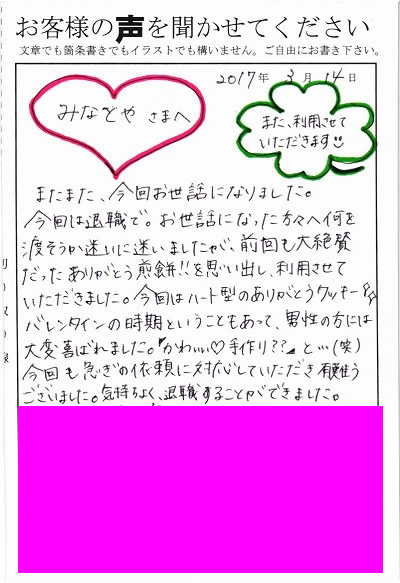 お客様の声を聞かせてください
文章でも箇条書きでもイラストでも構いません。ご自由にお書き下さい。
2017年 3月 14日
みなとや さまへ
また、利用させて
いただきます
またまた、今回お世話になりました。
今回は退職で。お世話になった方々へ何を
渡そうか迷いに迷いましたが、前回も大絶賛
だったありがとう煎餅!!を思い出し、利用させて
いただきました。今回はハート型のありがとうクッキー
バレンタインの時期ということもあって、男性の方には
大変喜ばれました。「かわいい♡手作り??」と…(笑)
今回も急ぎの依頼に対応していただき有難う
ございました。気持ちよく、退職することができました。